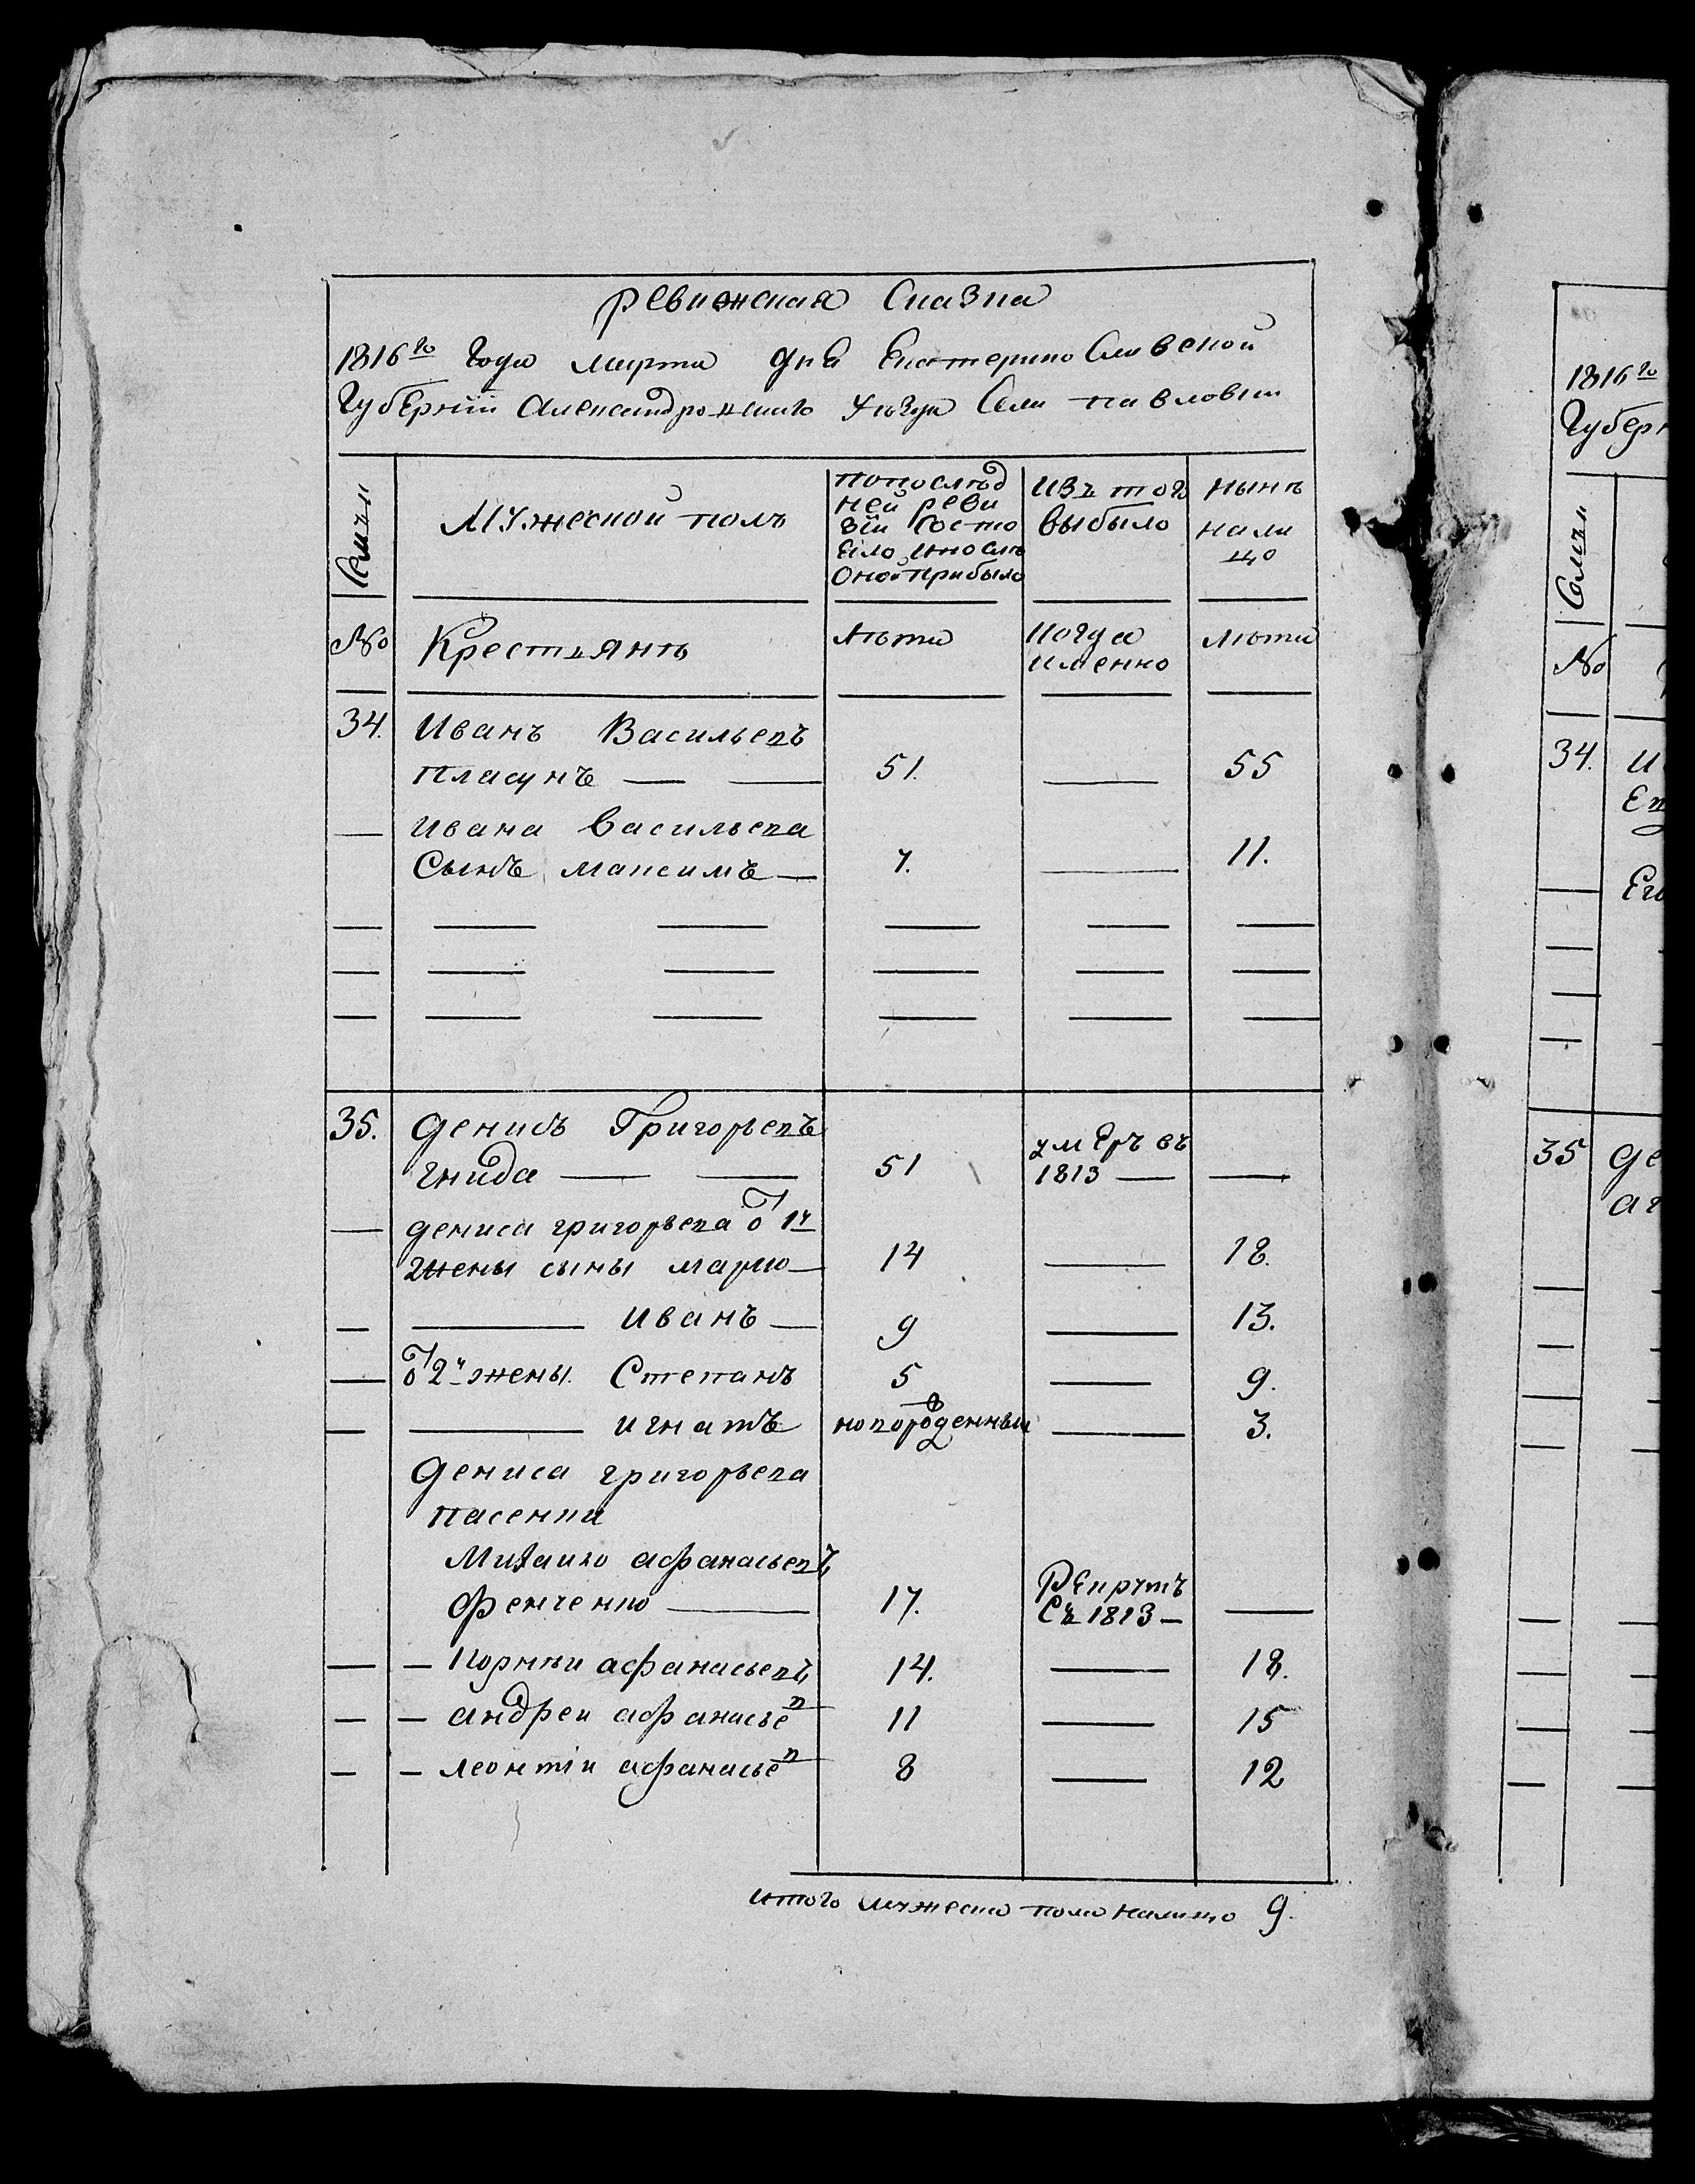 Ревижская Сказка
1816го Года Марта дня Екатерино Славской
Губернїи Александровскаго Уѣзда Села павловки
Семьи
Мужеской полъ
попослѣд
ней реви
зїи Состо
яло ипослѣ
Оной прибыло
Изъ того
выбыло
нынѣ
нали
цо
№
Крестьянѣ
лѣта
когда
именно
лѣта
34.
Иванъ Васильевъ
пласунъ
51.
55
Ивана Васильева
Сынъ максимъ
7.
11.
35.
денисъ Григорьевъ
гнида
51
умеръ въ
1813
дениса григорьева от 1й
жены сыны марко
14
18.
иванъ
9
13.
от 2й жены Степанъ
5
9.
игнатъ
новорожденныи
3.
дениса григорьева
пасенки
михаило афанасьевъ
фенченко
17.
Рекрутъ
Съ 1813
корнѣи афанасьевъ
14.
18.
андреи афанасьев
11
15
леонтїи афанасьев
8
12
итого мужеска пола налицо 9.
1816го
Губерн
Семьи
№
34.
И
Ев
Его
35
де
аг